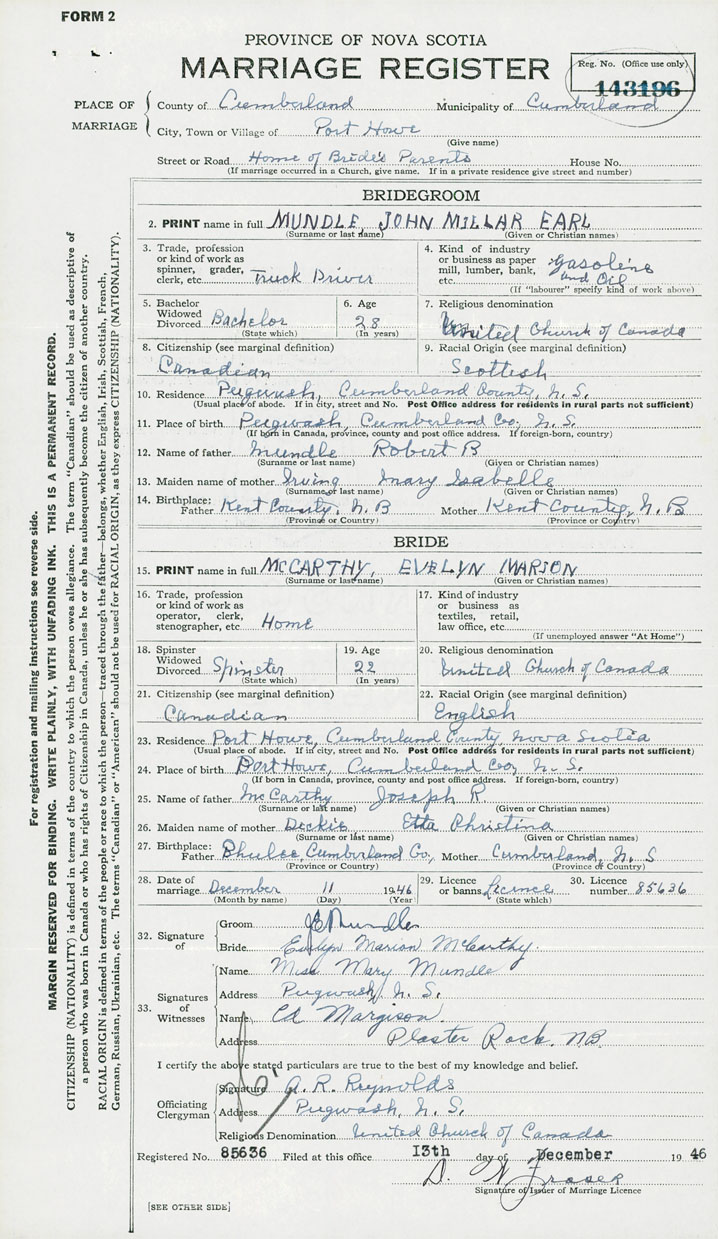 FORM 2
PROVINCE OF NOVA SCOTIA
MARRIAGE REGISTER
Reg. No. (Office use only)
143196
PLACE OF MARRIAGE
County of Cumberland Municipality of Cumberland
City, Town or Village of Port Howe
(Give name)
Street or Road Home of Bride's Parents House No.
(If marriage occurred in a Church, give name. If in a private residence give street and number)
BRIDEGROOM
2. PRINT name in full MUNDLE, JOHN MILLAR EARL
(Surname or last name) (Given or Christian names)
3. Trade, profession or kind of work as spinner, grader, clerk, etc. Truck Driver
4. Kind of industry or business as paper mill, lumber, bank, etc. Gasolene and Oil
(If "labourer" specify kind of work above)
5. Bachelor Widowed Divorced Bachelor
(State which)
6. Age 28
(In years)
7. Religious denomination
United Church of Canada
8. Citizenship (see marginal definition)
Canadian
9. Racial Origin (see marginal definition)
Scottish
10. Residence Pugwash, Cumberland County, N. S.
(Usual place of abode. If in city, street and No. Post Office address for residents in rural parts not sufficient)
11. Place of birth Pugwash, Cumberland Co., N. S.
(If born in Canada, province, county and post office address. If foreign-born, country)
12. Name of father Mundle Robert B
(Surname or last name) (Given or Christian names)
13. Maiden name of mother Irving Mary Isabelle
(Surname or last name) (Given or Christian names)
14. Birthplace: Father Kent County, N. B Mother Kent County, N. B
(Province or Country) (Province or Country)
BRIDE
15. PRINT name in full McCARTHY, EVELYN MARION
(Surname or last name) (Given or Christian names)
16. Trade, profession or kind of work as operator, clerk, stenographer, etc. Home
17. Kind of industry or business as textiles, retail, law office, etc.
(If unemployed answer "At Home")
18. Spinster Widowed Divorced Spinster
(State which)
19. Age 22
(In years)
20. Religious denomination
United Church of Canada
21. Citizenship (see marginal definition)
Canadian
22. Racial Origin (see marginal definition)
English
23. Residence Port Howe, Cumberland County, Nova Scotia
(Usual place of abode. If in city, street and No. Post Office address for residents in rural parts not sufficient)
24. Place of birth Port Howe, Cumberland Co., N. S.
(If born in Canada, province, county and post office address. If foreign-born, country)
25. Name of father McCarthy Joseph R.
(Surname or last name) (Given or Christian names)
26. Maiden name of mother Dickie Etta Christina
(Surname or last name) (Given or Christian names)
27. Birthplace: Father Cumberland Co., Mother Cumberland, N. S
(Province or Country) (Province or Country)
28. Date of marriage December 11 1946
(Month by name) (Day) (Year)
29. Licence or banns Licence
(State which)
30. Licence number 85636
32. Signature of
Groom J E Mundle
Bride Evelyn Marion McCarthy.
33. Signatures of Witnesses
Name Miss Mary Mundle
Address Pugwash, N. S.
Name Ed Margison
Address Plaster Rock, N.B.
I certify the above stated particulars are true to the best of my knowledge and belief.
Officiating Clergyman
Signature A. R. Reynolds
Address Pugwash, N. S.
Religious Denomination United Church of Canada
Registered No. 85636 Filed at this office 13th day of December 19 46
D. W Fraser
Signature of Issuer of Marriage Licence
[SEE OTHER SIDE]
For registration and mailing instructions see reverse side.
MARGIN RESERVED FOR BINDING. WRITE PLAINLY, WITH UNFADING INK. THIS IS A PERMANENT RECORD.
CITIZENSHIP (NATIONALITY) is defined in terms of the country to which the person owes allegiance. The term "Canadian" should be used as descriptive of
a person who was born in Canada or who has rights of Citizenship in Canada, unless he or she has subsequently become the citizen of another country.
RACIAL ORIGIN is defined in terms of the people or race to which the person—traced through the father—belongs, whether English, Irish, Scottish, French,
German, Russian, Ukrainian, etc. The terms "Canadian" or "American" should not be used for RACIAL ORIGIN, as they express CITIZENSHIP (NATIONALITY).